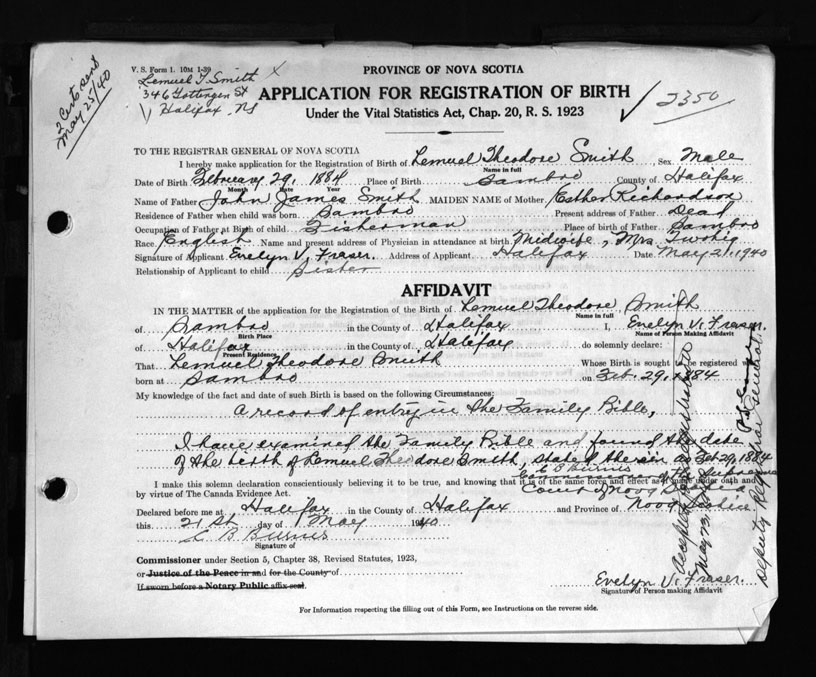 2 Certs sent
May 25/40
V. S. Form 1. 10M 1-39
Lemuel T. Smith X
346 Gottingen St
Halifax, NS
PROVINCE OF NOVA SCOTIA
APPLICATION FOR REGISTRATION OF BIRTH
Under the Vital Statistics Act, Chap. 20, R. S. 1923
2350
TO THE REGISTRAR GENERAL OF NOVA SCOTIA
I hereby make application for the Registration of Birth of Lemuel Theodore Smith, Sex Male
Name in full
Date of Birth February 29, 1884 Place of Birth Sambro County of Halifax
Month Day Year
Name of Father John James Smith MAIDEN NAME of Mother Esther Richardson
Residence of Father when child was born Sambro Present address of Father Dead
Occupation of Father at Birth of child Fisherman Place of birth of Father Sambro
Race English Name and present address of Physician in attendance at birth Midwife, Mrs. Twohig
Signature of Applicant Evelyn V. Fraser. Address of Applicant Halifax Date May 21, 1940
Relationship of Applicant to child Sister
AFFIDAVIT
IN THE MATTER of the application for the Registration of the Birth of Lemuel Theodore Smith
Name in full
of Sambro in the County of Halifax I, Evelyn V. Fraser.
Birth Place Name of Person Making Affidavit
of Halifax in the County of Halifax do solemnly declare:
Present Residence
That Lemuel Theodore Smith Whose Birth is sought to be registered was
born at Sambro on Feb. 29, 1884
My knowledge of the fact and date of such Birth is based on the following Circumstances:
A record of entry in the Family Bible,
I have examined the Family Bible and found the date
of the birth of Lemuel Theodore Smith, stated therein as Feb 29, 1884
C B Burns
I make this solemn declaration conscientiously believing it to be true, and knowing that it is of the same force and effect as if made under oath and
by virtue of The Canada Evidence Act.
of the Supreme
Court of Nova Scotia
Declared before me at Halifax in the County of Halifax and Province of Nova Scotia
this 21st day of May 1940
C B Burns
Signature of
Commissioner under Section 5, Chapter 38, Revised Statutes, 1923,
or Justice of the Peace in and for the County of
If sworn before a Notary Public affix seal.
Evelyn V. Fraser.
Signature of Person making Affidavit
For Information respecting the filling out of this Form, see Instructions on the reverse side.
Accepted
Deputy Registrar General